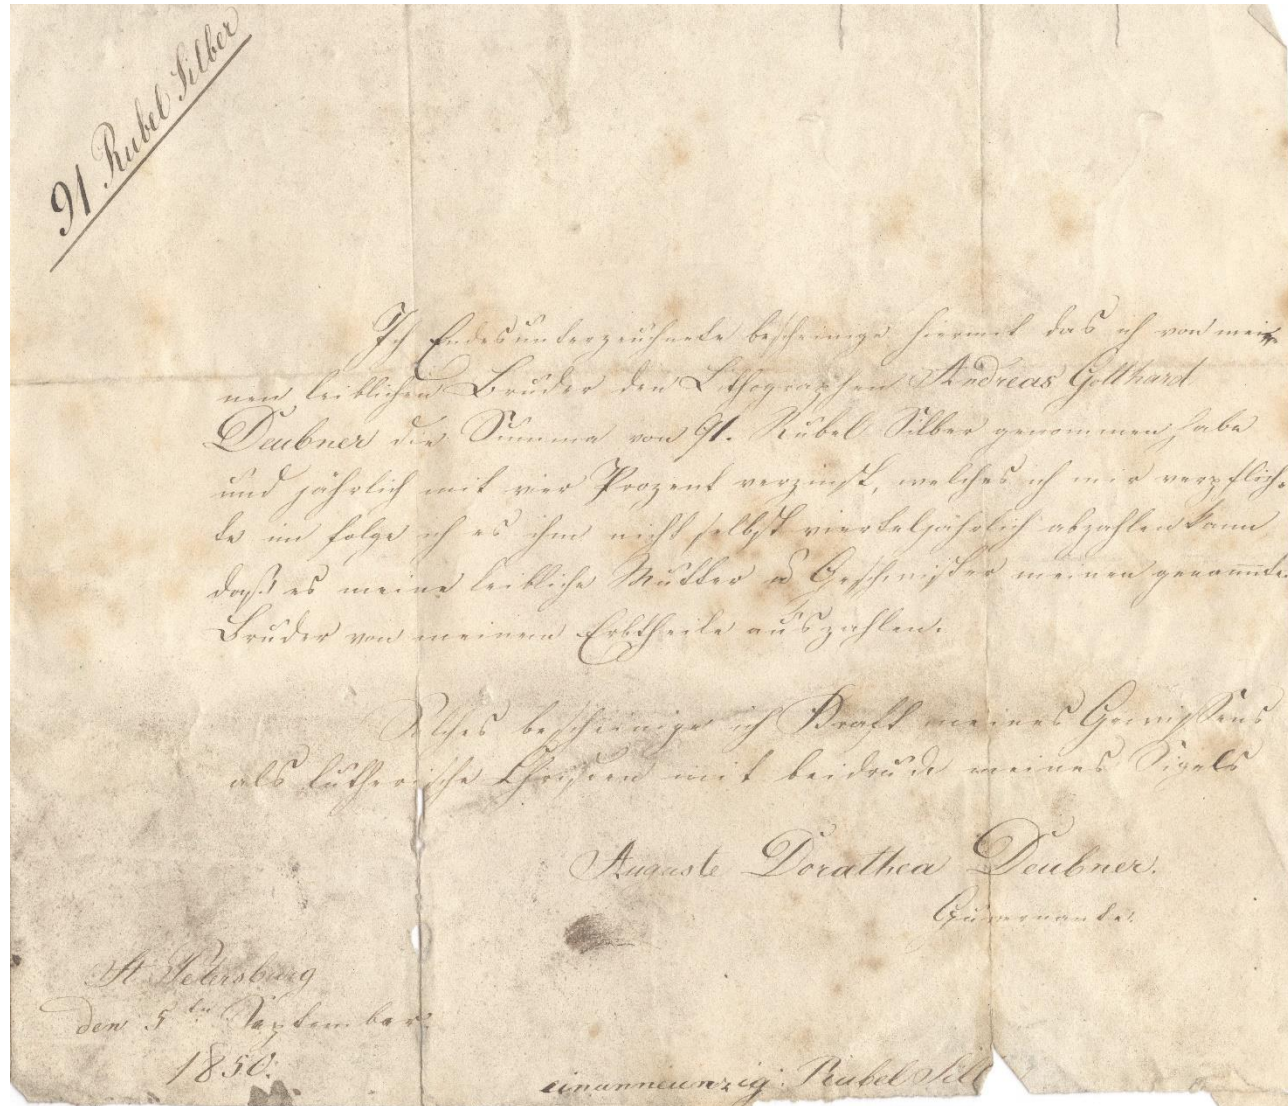 91 Rubel Silber
Ich Endesunterzeichnete bescheinige hiermit das ich von mei-
nen leiblichen Bruder den Lithographen Andreas Gotthard
Deubner die Summa von 91. Rubel Silber genommen habe
und jährlich mit vier Prozent verzinst, welches ich mir verpflich-
te im folge ich es ihm nicht selbst vierteljährlich abzahlen kann
daß es meine leibliche Mutter u Geschwister meinen genannten
Bruder von meinem Erbtheile auszahlen.
Solches bescheinige ich Kraft meines Gewissens
als lutherische Christen mit beidruck meines Sigels
Auguste Dorathea Deubner.
Guvernante.
St. Petersburg
den 5ten September
1850.
einunneunzig: Rubel Silb